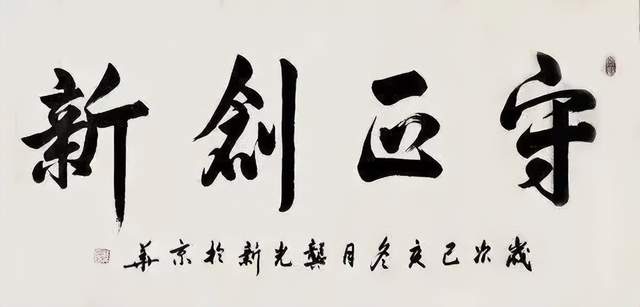 守正創新
歲次己亥冬月龔光新於京華